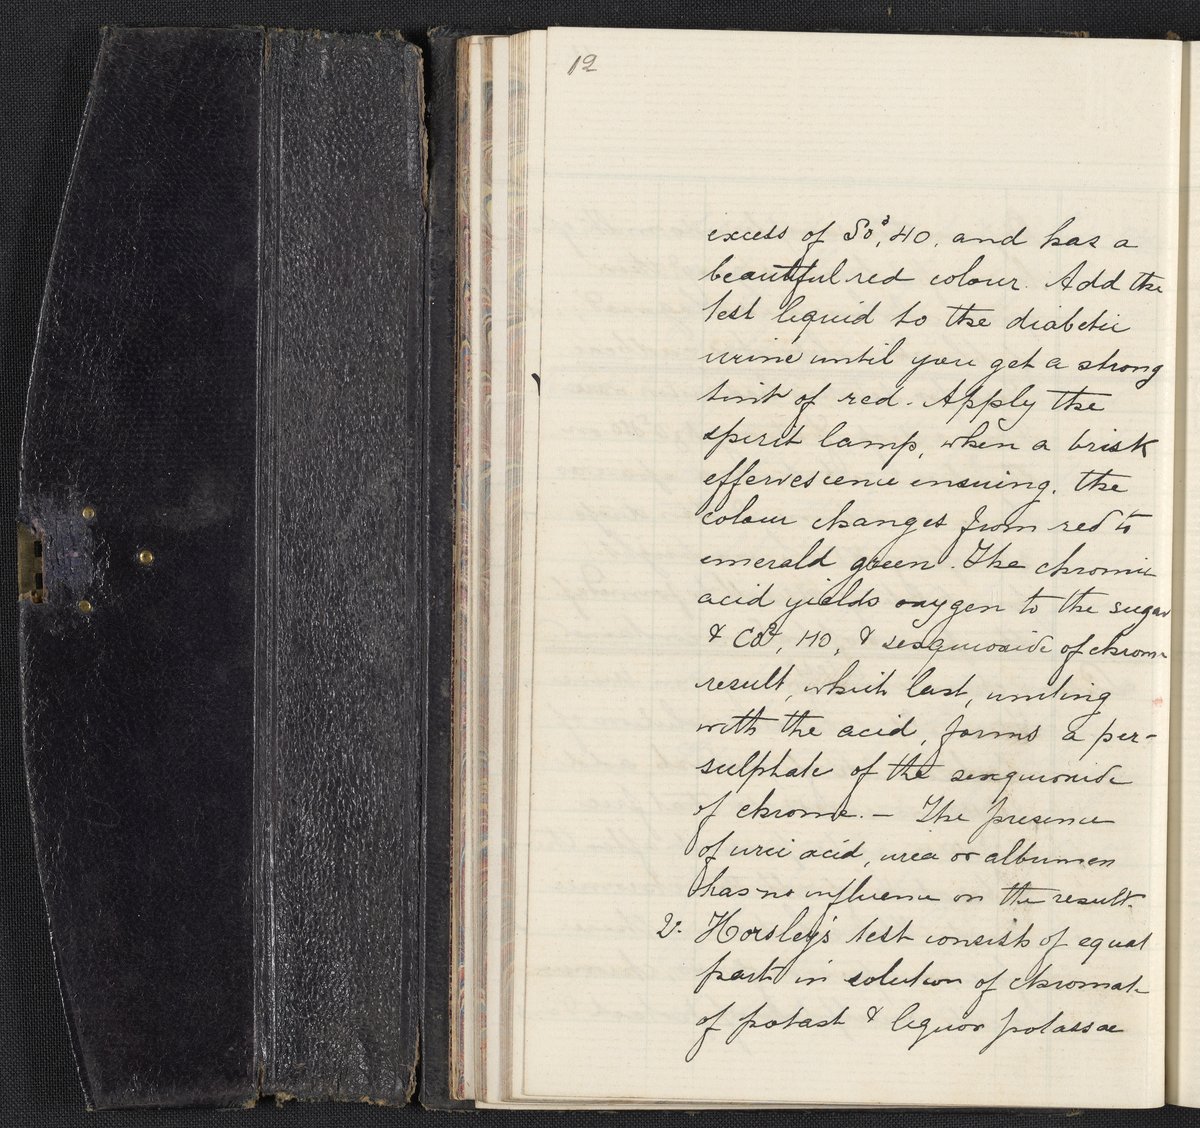 12
excess of So³, HO, and has a
beautiful red colour. Add the
test liquid to the diabetic
urine until you get a strong
tint of red. Apply the
spirit lamp, when a brisk
effervescence ensuing, the
colour changes from red to
emerald green. The chromic
acid yields oxygen to the sugar
& Co², HO, & sesquioxide of chrome
result, which last, uniting
with the acid, forms a per-
sulphate of the sesquioxide
of chrome. — The presence
of uric acid, urea or albumen
has no influence on the result.
2. Horsley's test consists of equal
parts in solution of chromate
of potash & liquor potassae